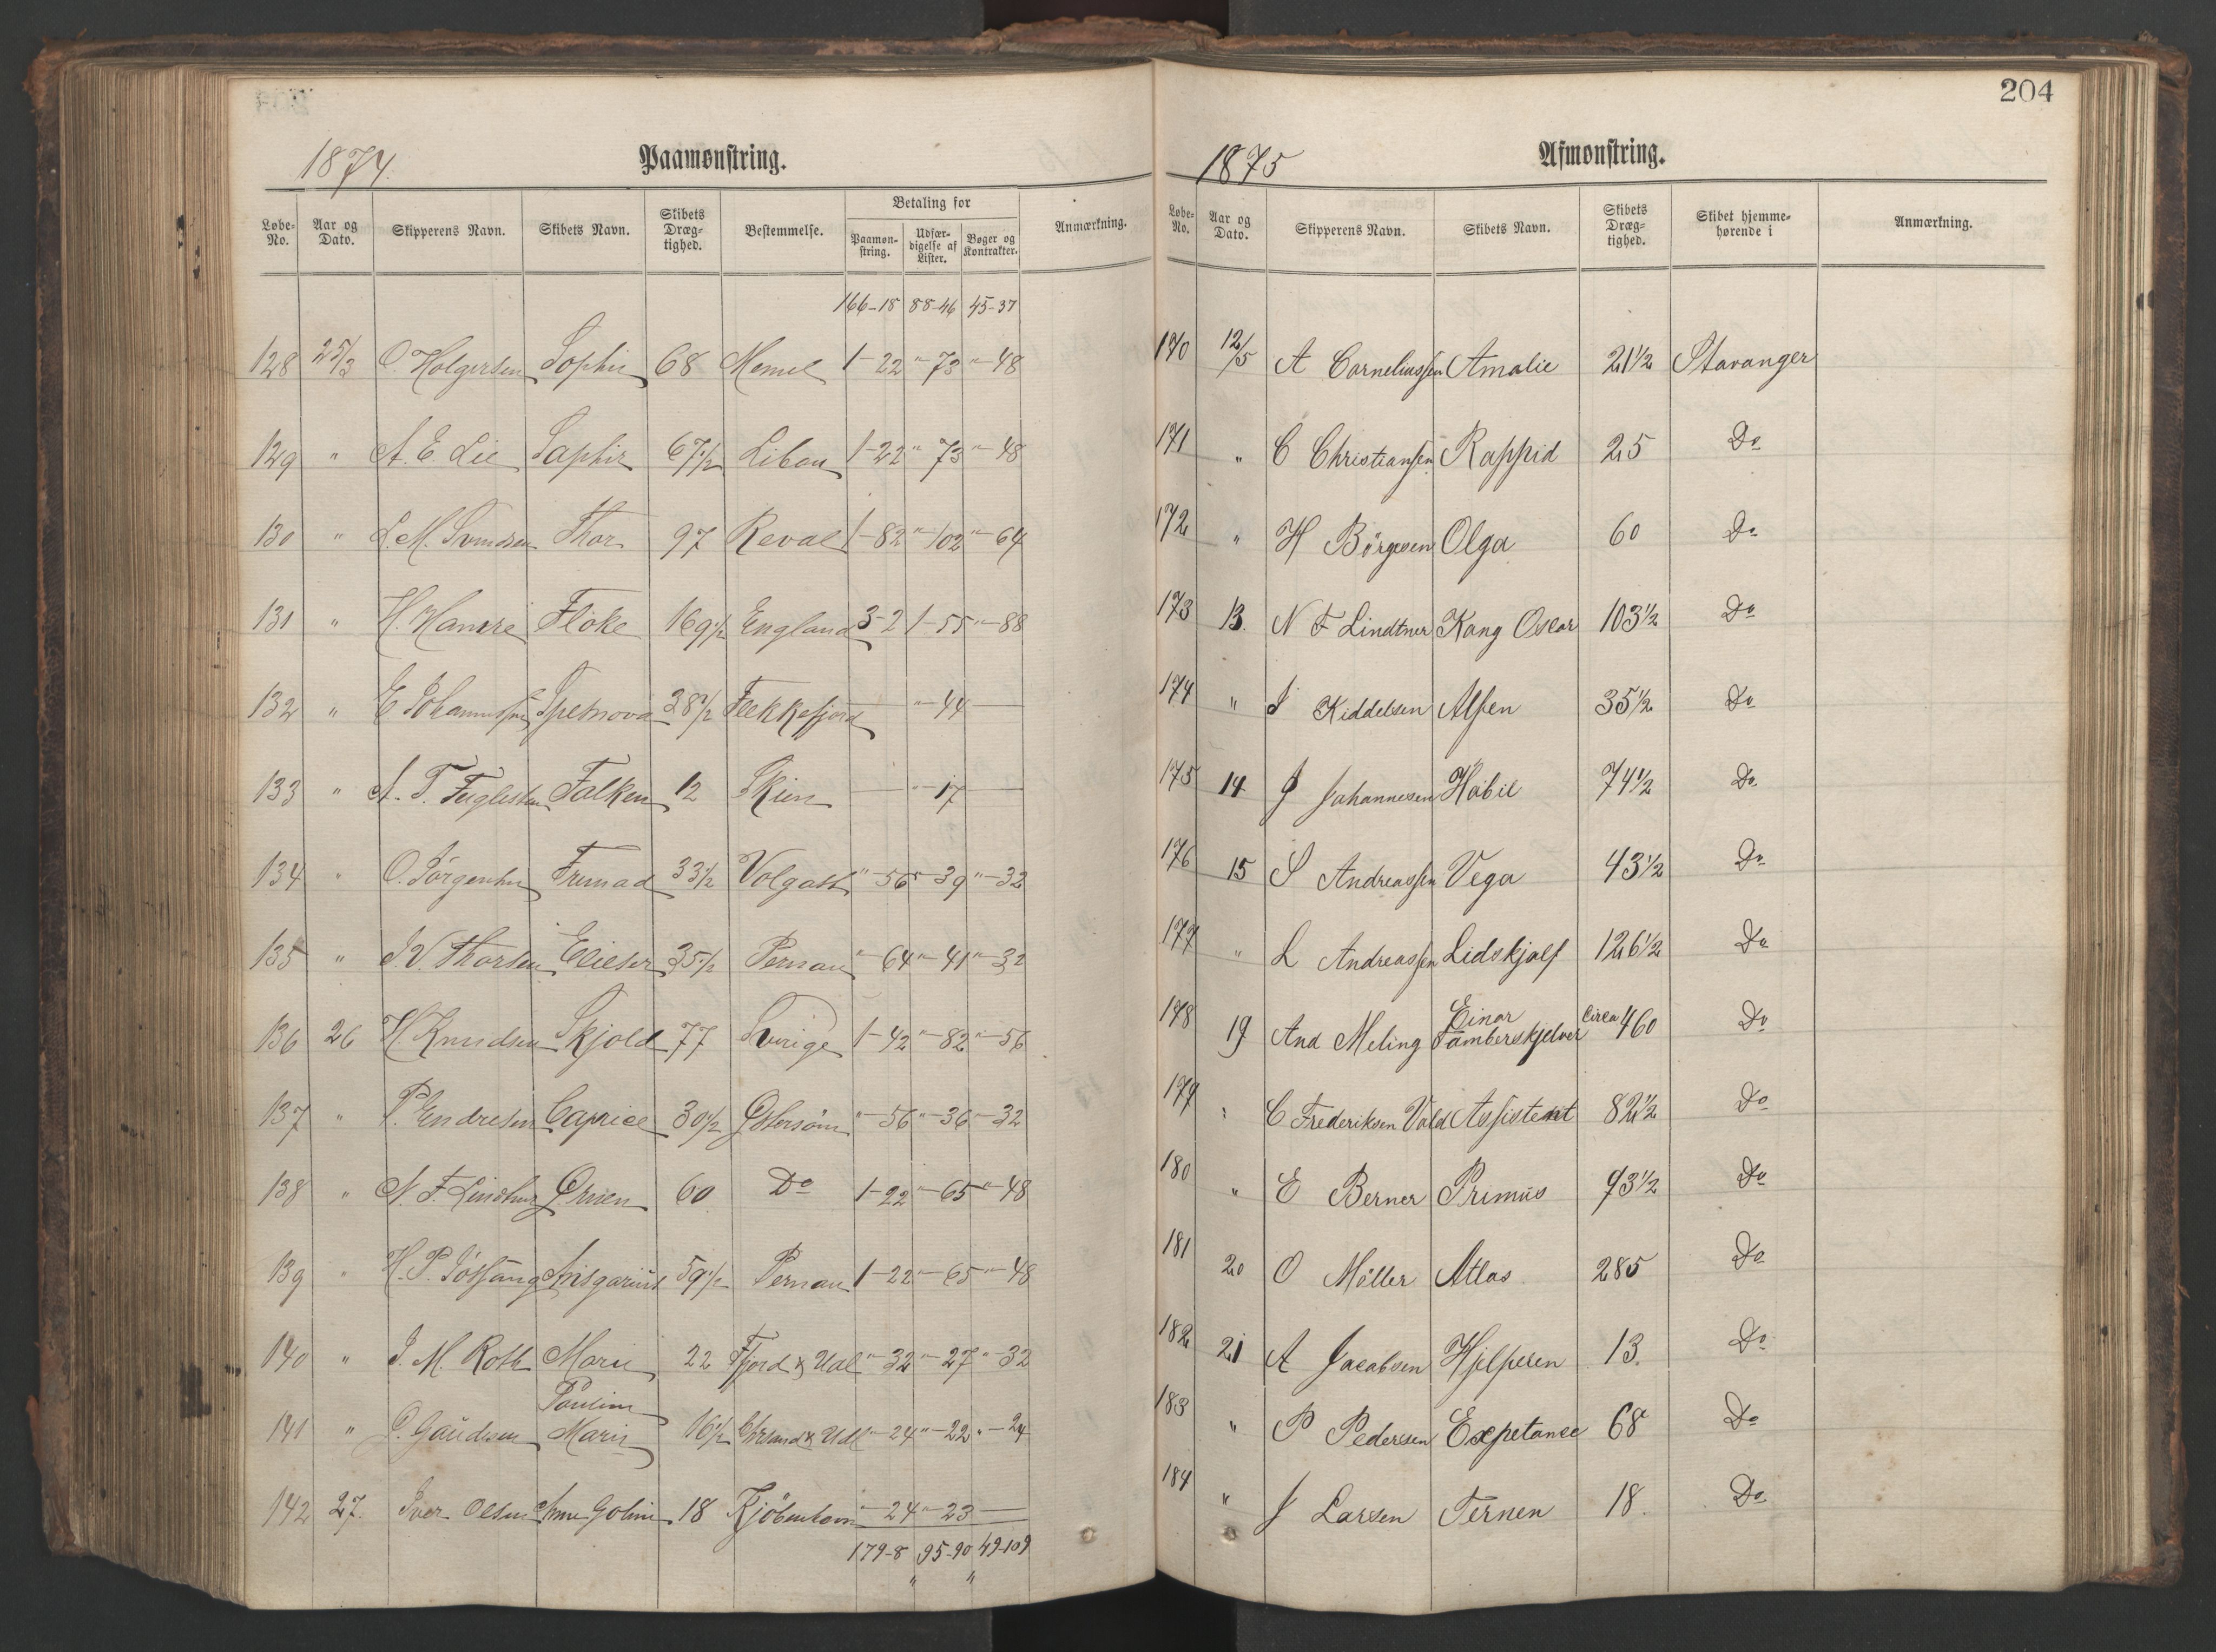 204
1874. Paamønstring.
Løbe-No. Aar og Dato. Skipperens Navn. Skibets Navn. Skibets Dræg-tighed. Bestemmelse. Betaling for Paamøn-string. Udfær-digelse af Lister. Bøger og Kontrakter. Anmærkning.
166-18 88-46 45-37
128 25/3 O. Holgersen Sophie 68 Memel 1-22 "-73 "-48
129 " A. E. Lie Saphir 67 1/2 Libau 1-22 "-73 "-48
130 " L. M. Svendsen Thor 97 Reval 1-82 "-102 "-64
131 " H. Floke 169 1/2 England 3-2 1-55 "-88
132 " E Johannessen Spesnova 38 1/2 Flekkefjord — "-44 —
133 " A. T. Fuglesten Falken 12 Skien — "-17 —
134 " O. Jörgensen Fremad 33 1/2 Volgast "-56 "-39 "-32
135 " J. V. Thorsen Elieser 35 1/2 Pernau "-64 "-41 "-32
136 26 H. Knudsen Skjold 77 Sverige 1-42 "-82 "-56
137 " P. Endresen Caprice 30 1/2 Østersöen "-56 "-36 "-32
138 " N. F. Lindtner Ornen 60 Do 1-22 "-65 "-48
139 " H. P. Ansgarius 59 1/2 Pernau 1-22 "-65 "-48
140 " J. M. Roth Marie 22 Fjord & Udl "-32 "-27 "-32
141 " O. Gaudesen Pauline Marie 16 1/2 Chrsand & Udl "-24 "-22 "-24
142 27. Iver Olsen Anne Goline 18 Kjöbenhavn "-24 "-23 —
179-8 95-90 49-109
" "
1875 Afmønstring.
Løbe-No. Aar og Dato. Skipperens Navn. Skibets Navn. Skibets Dræg-tighed. Skibet hjemme-hørende i Anmærkning.
170 12/5 A Corneliussen Amalie 21 1/2 Stavanger
171 " C Christiansen Rappid 25 Do
172 " H Börgesen Olga 60 Do
173 13. N F Lindtner Kong Oscar 103 1/2 Do
174 " S Kiddelsen Alfen 35 1/2 Do
175 14 J Johannesen Habil 74 1/2 Do
176 15 S Andreassen Vega 43 1/2 Do
177 " L Andreassen Lidskjalf 126 1/2 Do
178 19 And Meling Einar Tamberskjelver Circa 460 Do
179 " C Frederiksen Vold Assistent 82 1/2 Do
180 " E Berner Primus 93 1/2 Do
181 20 O Möller Atlas 285 Do
182 21 A Jacobsen Hjelperen 13. Do
183 " P Pedersen Expetance 68 Do
184 " J Larsen Ternen 18. Do